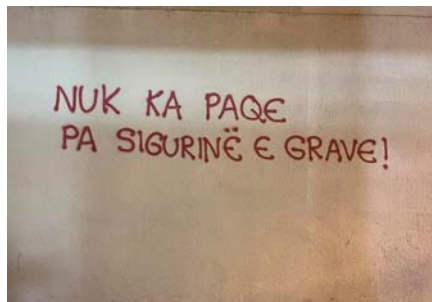 NUK KA PAQE
PA SIGURINË E GRAVE!